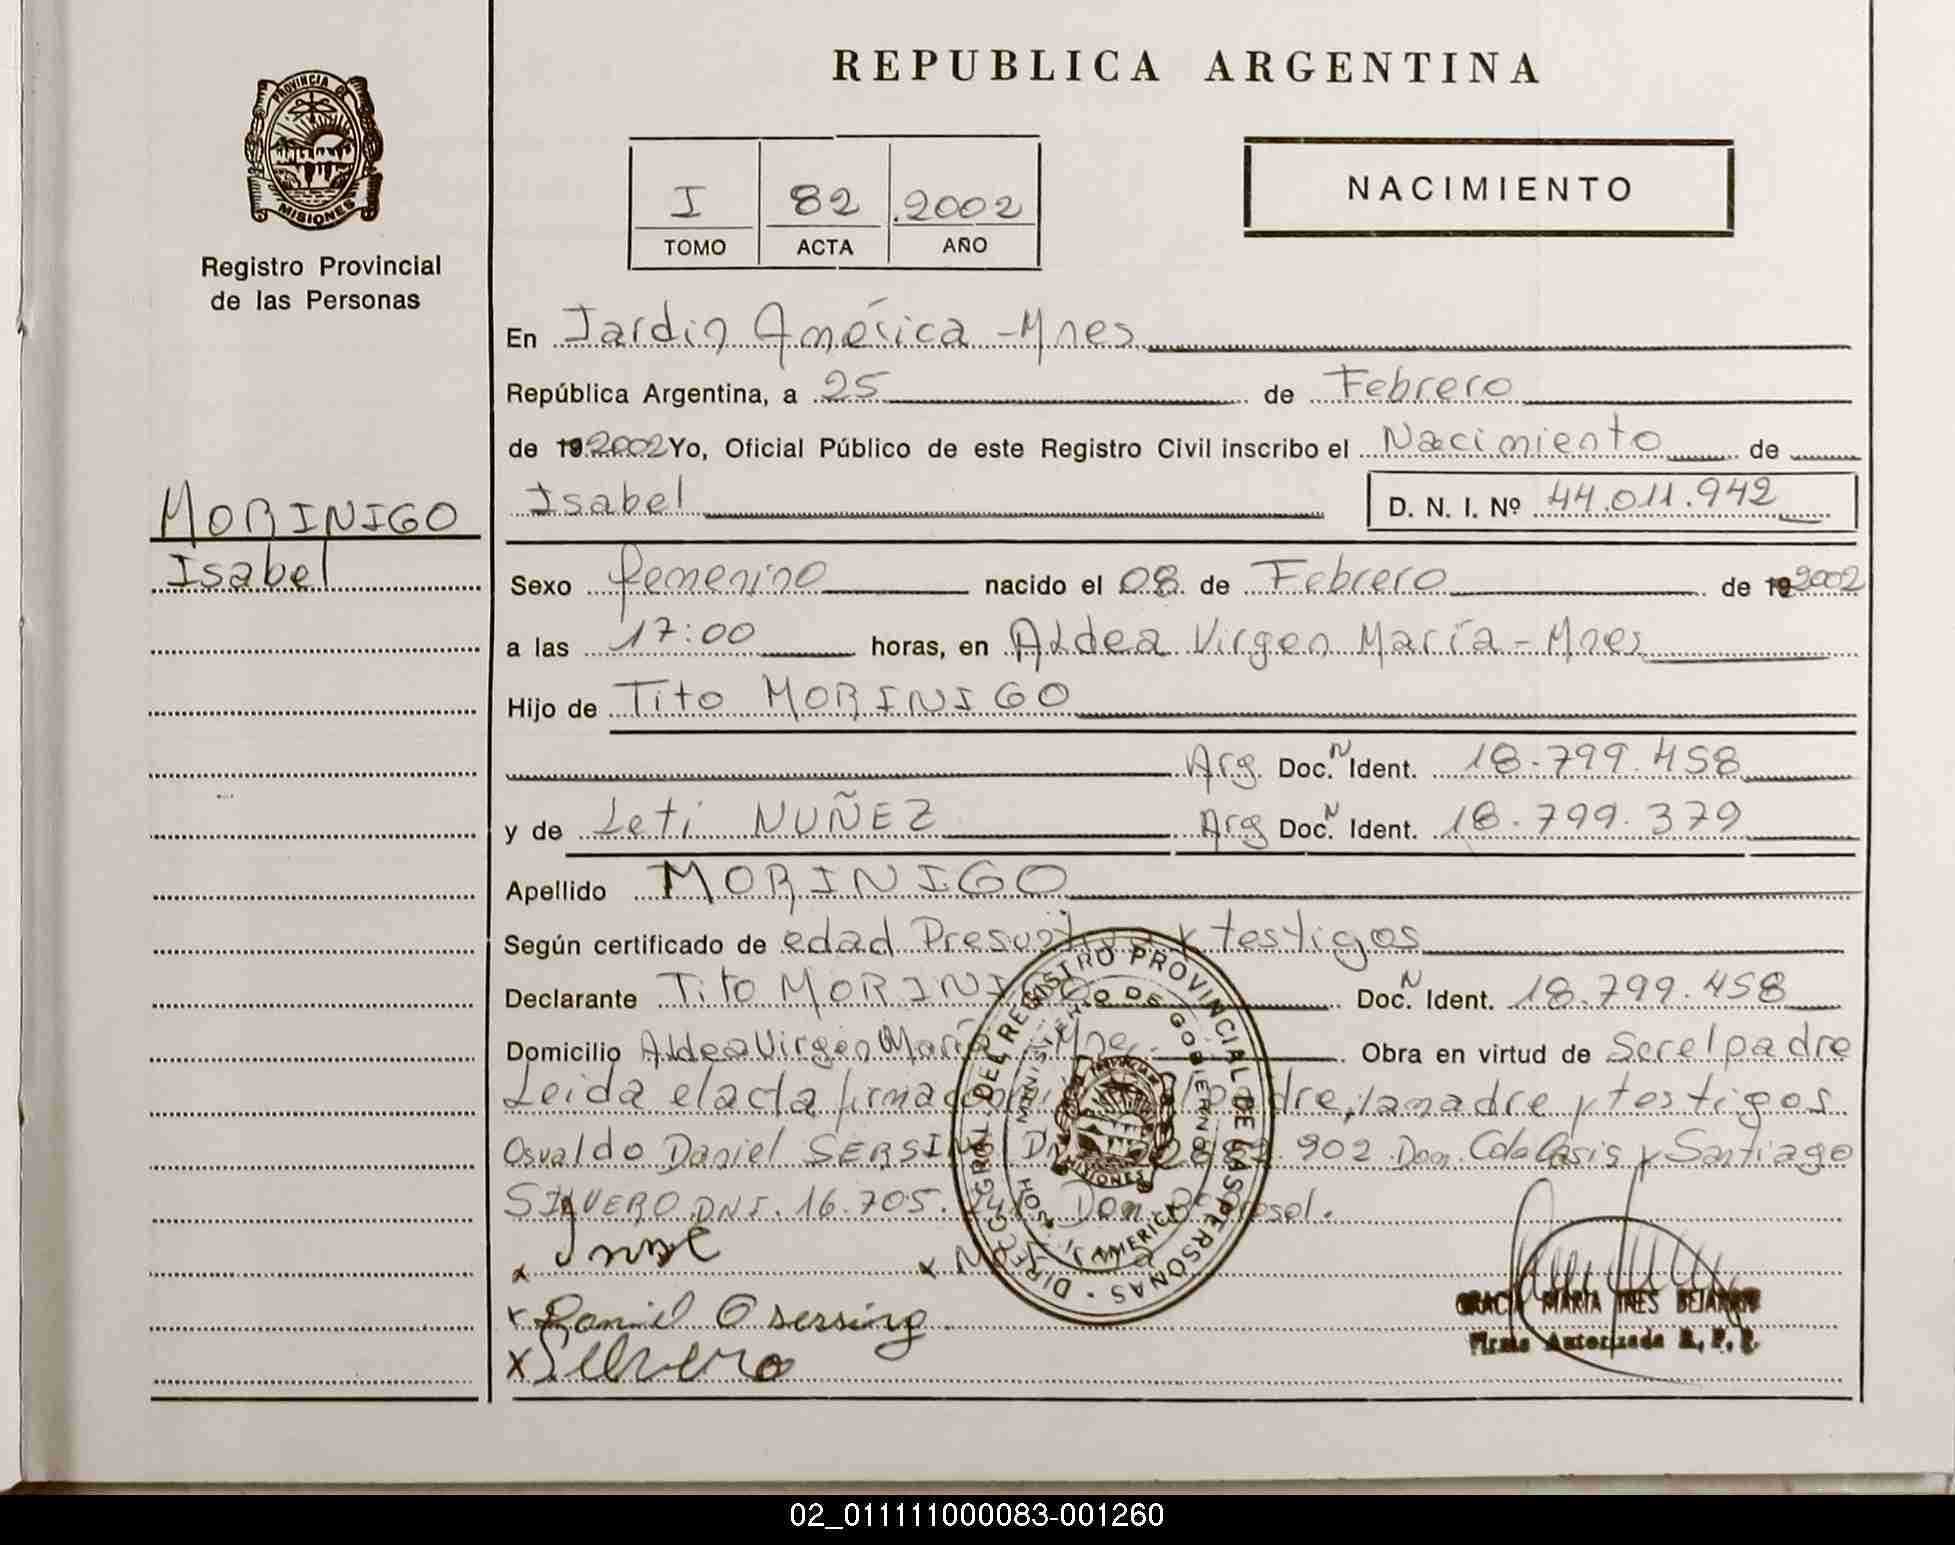 REPUBLICA ARGENTINA
PROVINCIA DE
MISIONES
Registro Provincial
de las Personas
I 82 2002
TOMO ACTA AÑO
NACIMIENTO
MORINIGO
Isabel
En Jardin América - Mnes
República Argentina, a 25 de Febrero
de 19 2002 Yo, Oficial Público de este Registro Civil inscribo el Nacimiento de
Isabel D. N. I. Nº 44.011.942
Sexo femenino nacido el 08 de Febrero de 19 2002
a las 17:00 horas, en Aldea Virgen María - Mnes
Hijo de Tito MORINIGO
Arg. Doc. N Ident. 18.799.458
y de Leti NUÑEZ Arg Doc. N Ident. 18.799.379
Apellido MORINIGO
Según certificado de edad Presuntiva y testigos
Declarante Tito MORINIGO Doc. N Ident. 18.799.458
Domicilio Aldea Virgen María Mne. Obra en virtud de Ser el padre
Leida el acta firma padre, la madre y testigos
Osvaldo Daniel 902 Dom. y Santiago
SILVERO DNI. 16.705. Dom.
DIREC. GRAL. DEL REGISTRO PROVINCIAL DE LAS PERSONAS
MINISTERIO DE GOBIERNO
MISIONES
J. AMERICA
x
x
x Daniel O sersing
x Silvero
GRACIA MARIA INES BEJARANO
Firma Autorizada R. P. P.
02_011111000083-001260